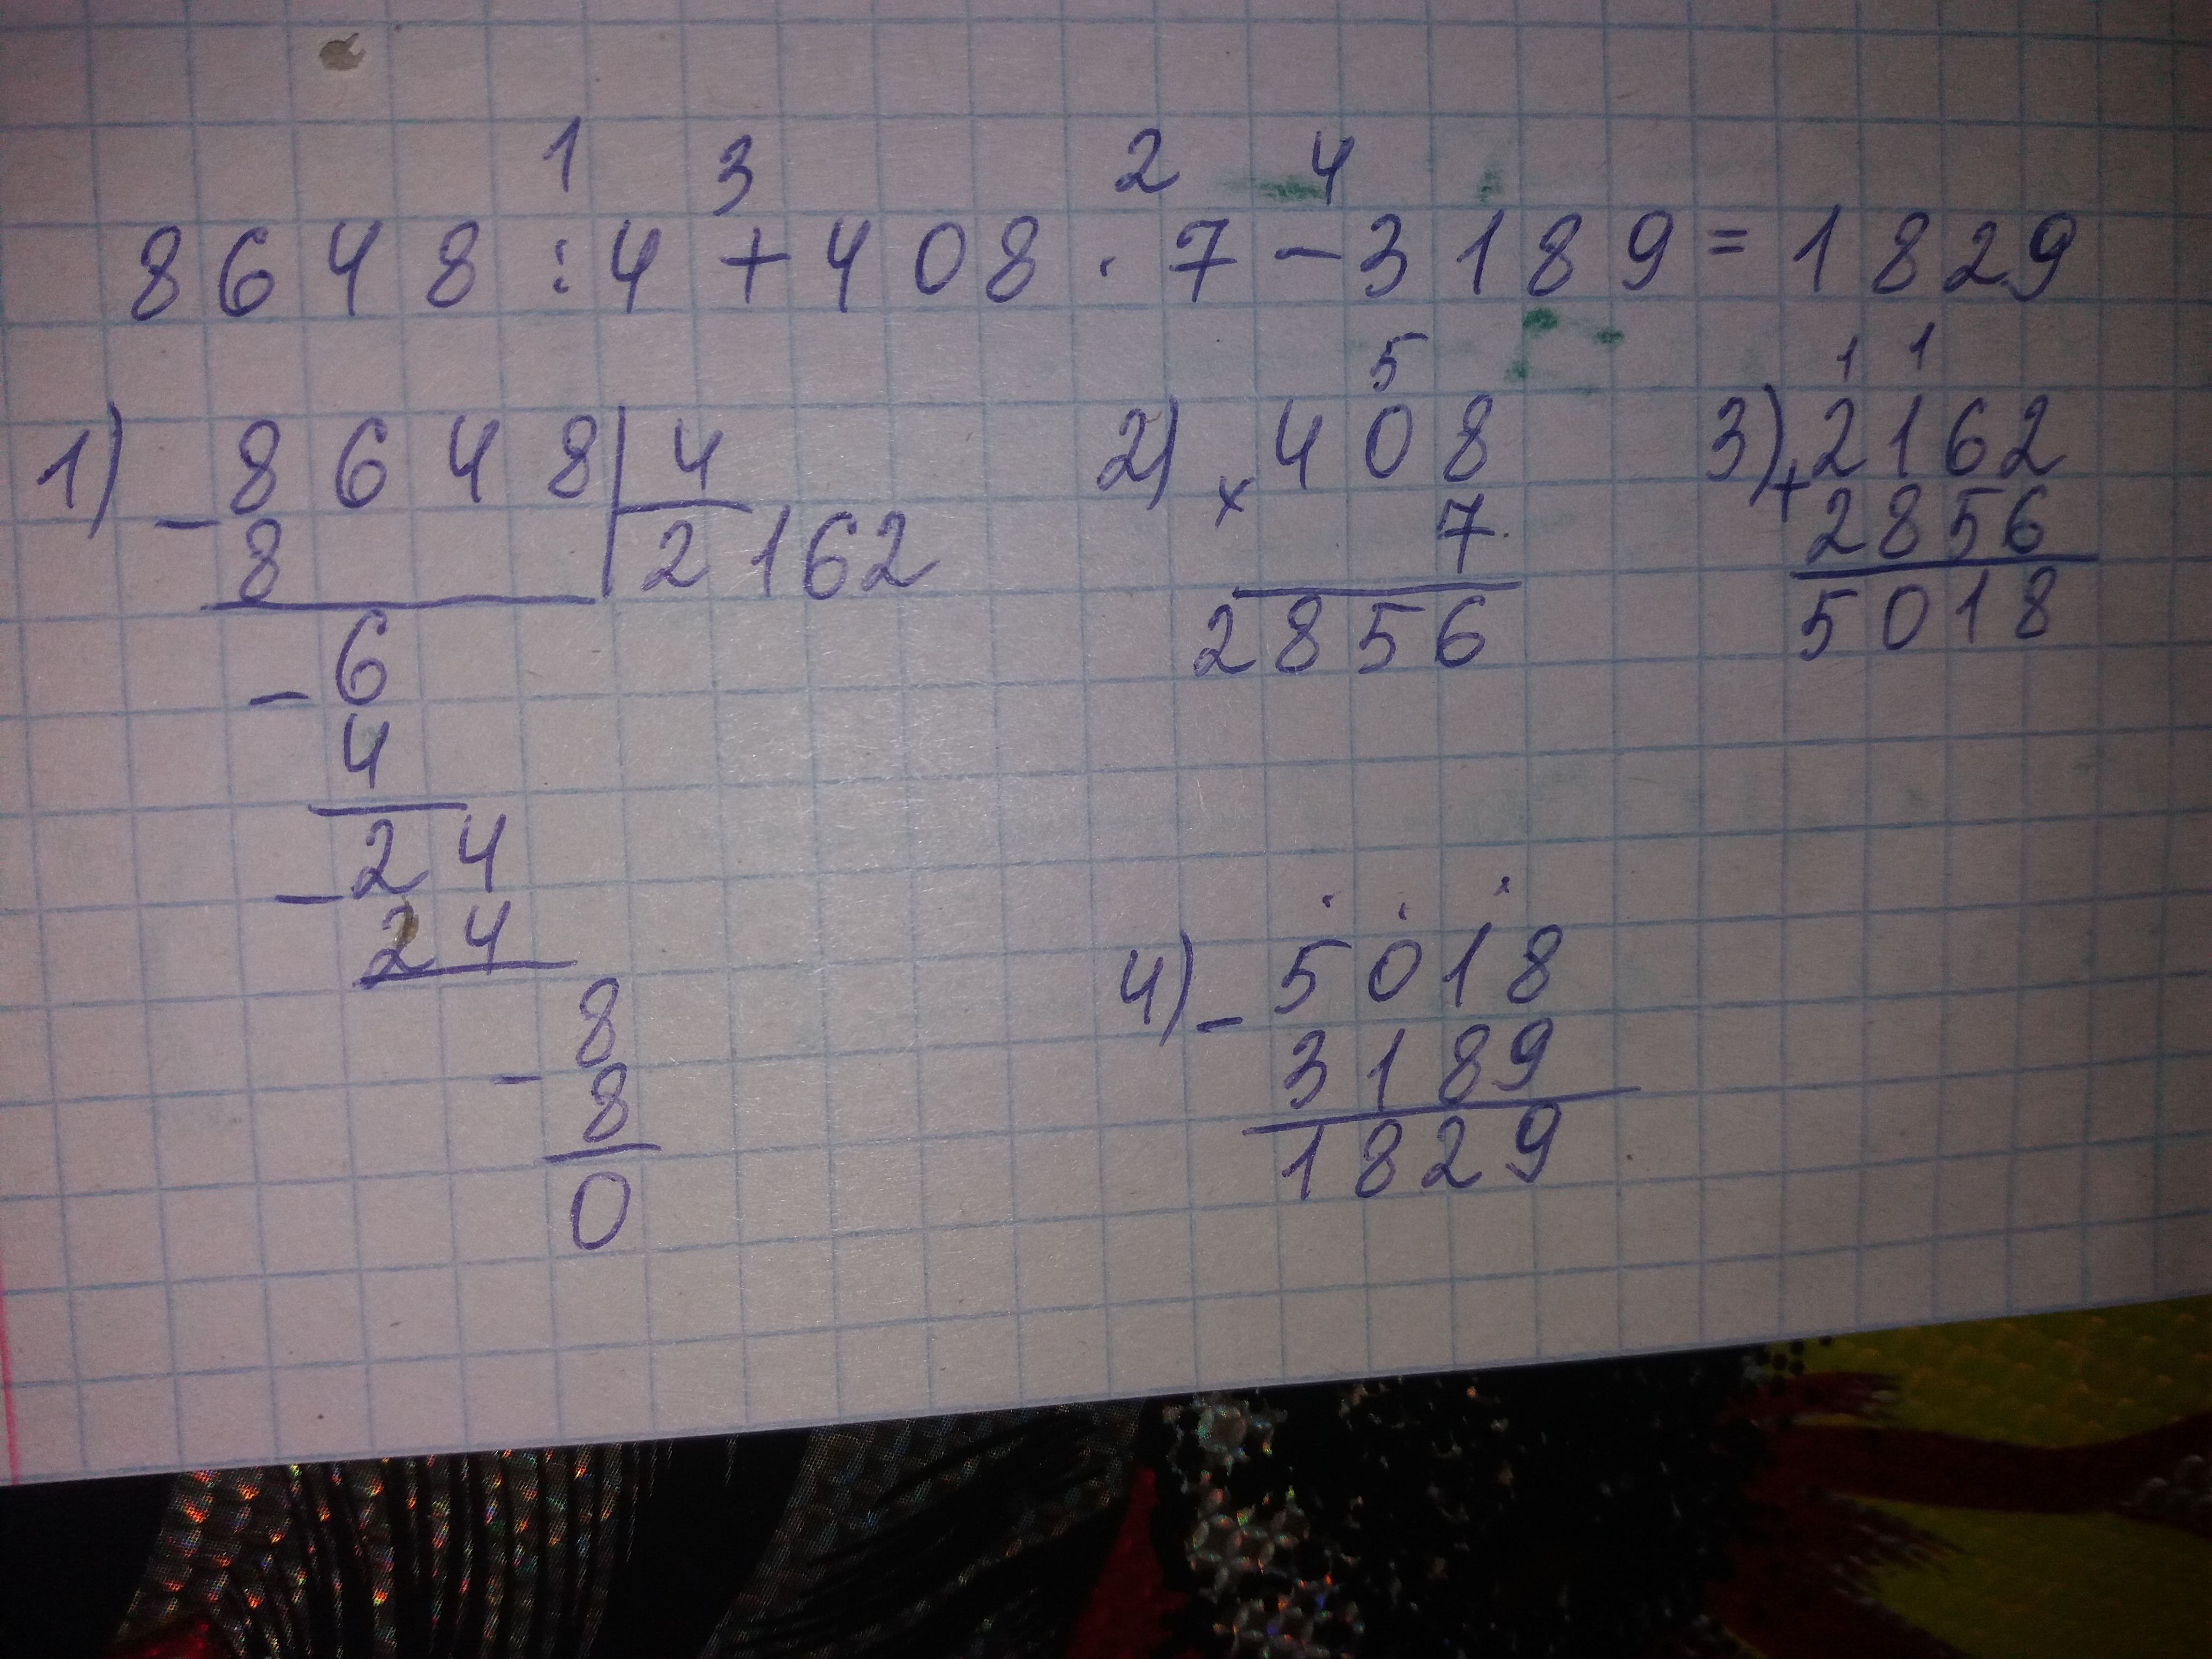 1 3 2 4
8648:4+408·7-3189=1829
1) -8648|4
8 2162
-6
4
-24
24
-8
8
0
5
2) ×408
7
2856
1 1
3) +2162
2856
5018
4) -5018
3189
1829